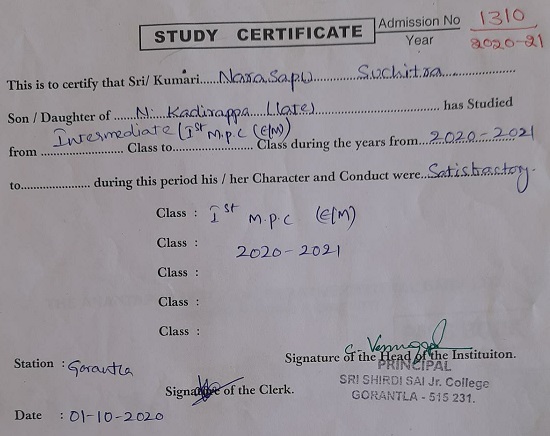 STUDY CERTIFICATE
Admission No 1310
Year 2020-21
This is to certify that Sri/ Kumari.....Narasapu Suchitra
Son / Daughter of ...N. Kadirappa (late)... has Studied
Intermediate (Ist M.P.C (E/M)
from ........ Class to........ Class during the years from..2020-2021
to........ during this period his / her Character and Conduct were..Satisfactory.
Class : Ist M.P.C (E/M)
Class : 2020-2021
Class :
Class :
Class :
Signature of the Head of the Instituiton.
PRINCIPAL
SRI SHIRDI SAI Jr. College
GORANTLA - 515 231.
Station : Gorantla
Signature of the Clerk.
Date : 01-10-2020